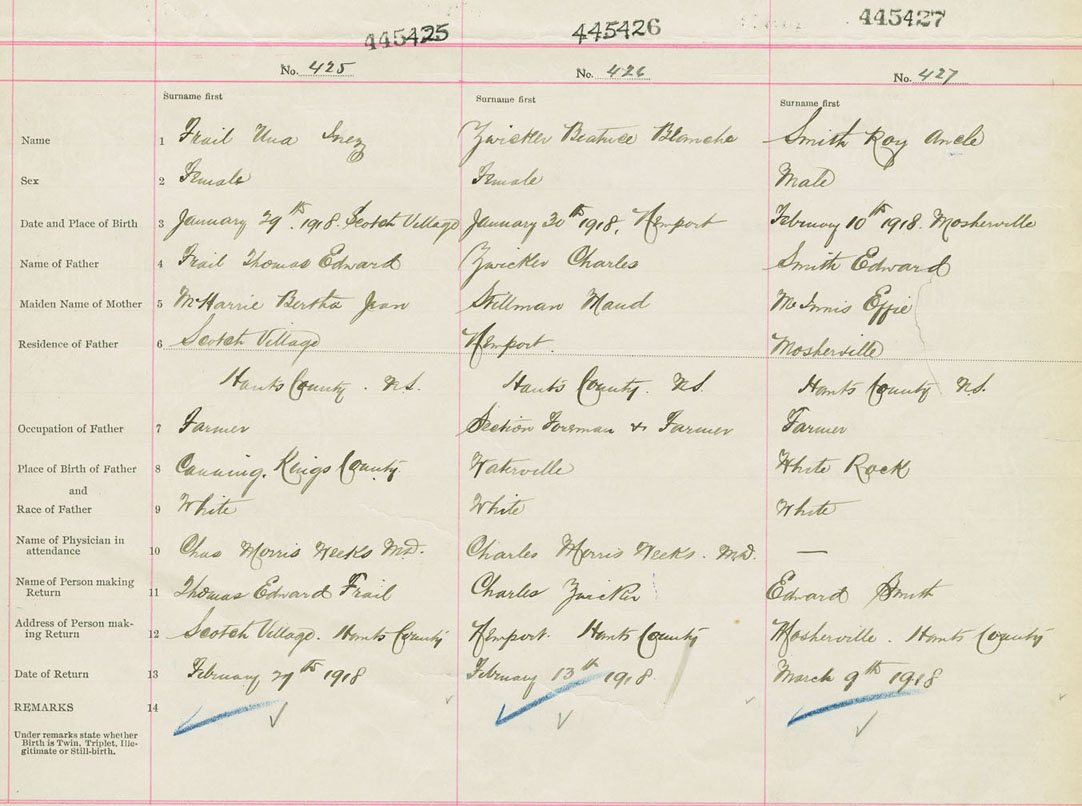 445425 445426 445427
No. 425 No. 426 No. 427
Surname first Surname first Surname first
Name 1 Frail Una Inez Zwicker Beatrice Blanche Smith Roy Ancle
Sex 2 Female Female Male
Date and Place of Birth 3 January 29th. 1918. Scotch Village January 30th 1918, Newport February 10th 1918. Mosherville
Name of Father 4 Frail Thomas Edward Zwicker Charles Smith Edward
Maiden Name of Mother 5 McHarrie Bertha Jean Stillman Maud McInnis Effie
Residence of Father 6 Scotch Village Newport. Mosherville
Hants County. N.S. Hants County. N.S. Hants County N.S.
Occupation of Father 7 Farmer Section Foreman & Farmer Farmer
Place of Birth of Father 8 Canning, Kings County. Waterville White Rock
and
Race of Father 9 White White White
Name of Physician in
attendance 10 Chas Morris Weeks M.D. Charles Morris Weeks. M.D. —
Name of Person making
Return 11 Thomas Edward Frail Charles Zwicker Edward Smith
Address of Person mak-
ing Return 12 Scotch Village. Hants County Newport. Hants County Mosherville. Hants County
Date of Return 13 February 27th 1918 February 13th 1918. March 9th 1918
REMARKS 14
Under remarks state whether
Birth is Twin, Triplet, Ille-
gitimate or Still-birth.